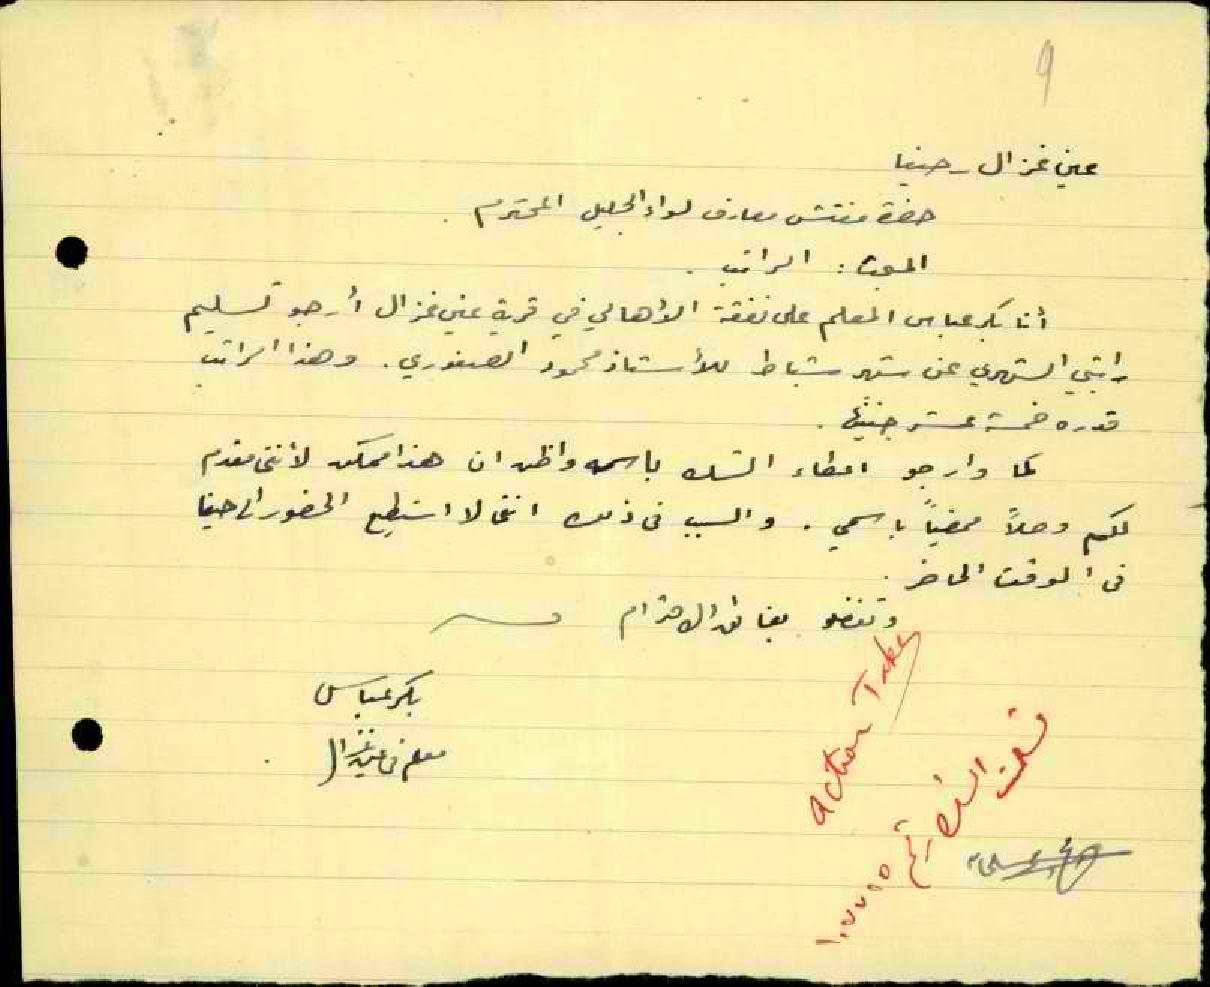 9
عين غزال - حيفا
حضرة مفتش معارف لواء الجليل المحترم .
المبحث : الراتب .
أنا بكر عباس المعلم على نفقة الأهالي في قرية عين غزال أرجو تسليم
راتبي الشهري عن شهر شباط للأستاذ محمود الصفوري . وهذا الراتب
قدره خمسة عشر جنيهًا .
كما وارجو اعطاء الشك باسمه واظن ان هذا ممكن لأنني مقدم
لكم وصلاً ممضياً باسمي . والسبب في ذلك انني لا استطيع الحضور الى حيفا
في الوقت الحاضر .
وتفضلو بفائق الاحترام
بكر عباس
معلم في عين غزال
Action Taken
تسلمت الشك رقم